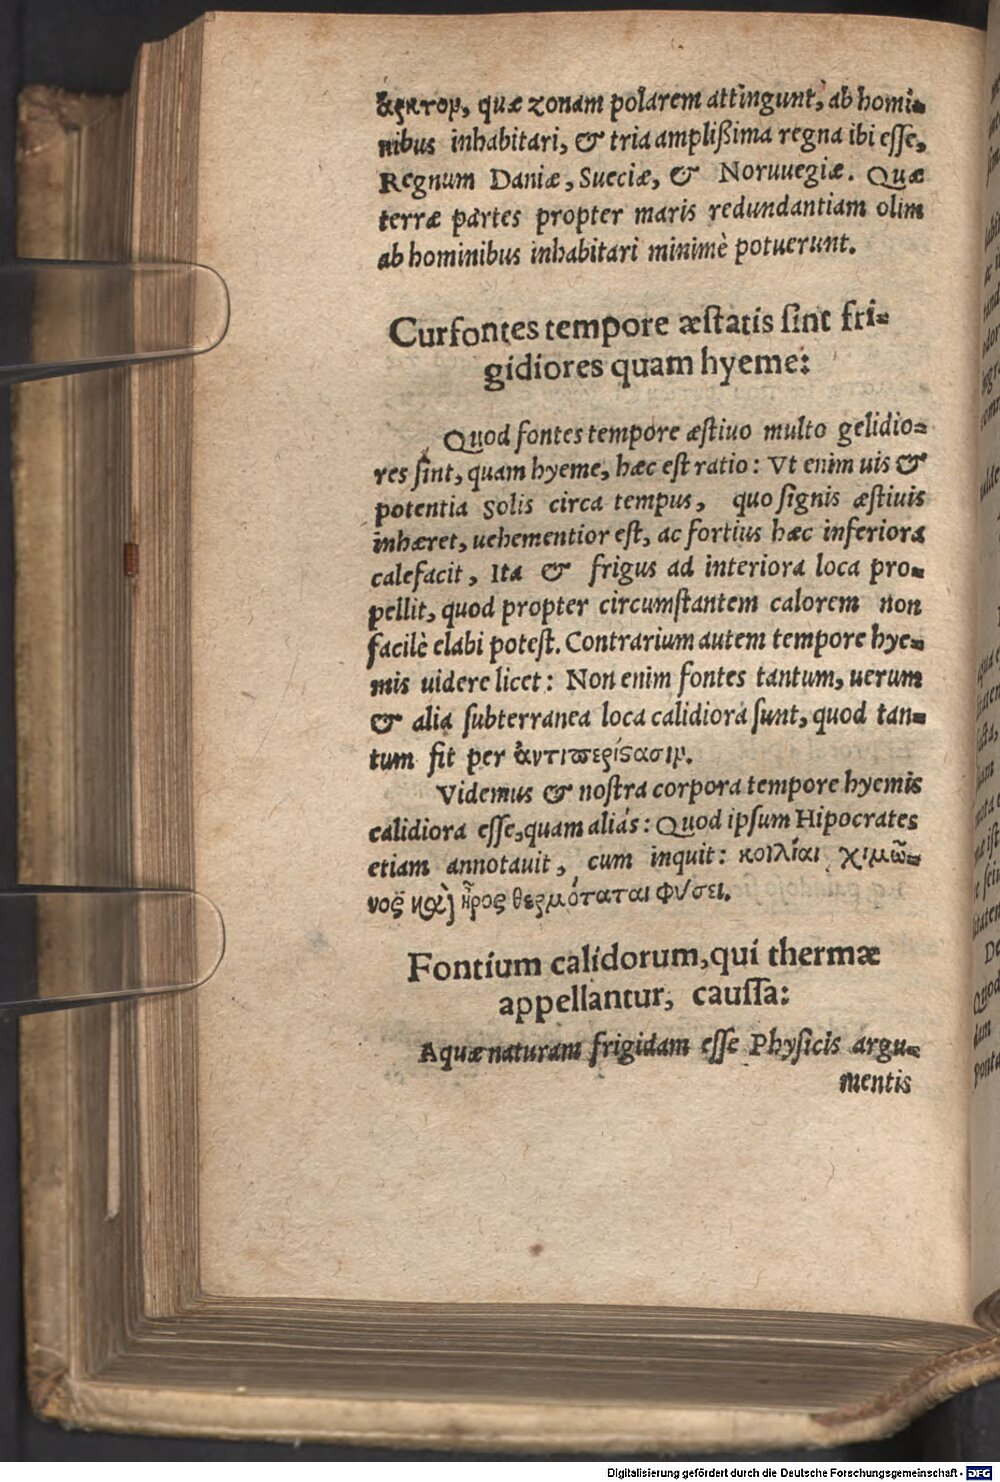 ἄρκτον, quæ zonam polarem attingunt, ab homi-
nibus inhabitari, & tria amplißima regna ibi esse,
Regnum Daniæ, Sueciæ, & Noruuegiæ. Quæ
terræ partes propter maris redundantiam olim
ab hominibus inhabitari minimè potuerunt.
Cur fontes tempore æstatis sint fri-
gidiores quam hyeme:
Quod fontes tempore æstiuo multo gelidio-
res sint, quam hyeme, hæc est ratio: Vt enim uis &
potentia Solis circa tempus, quo signis æstiuis
inhæret, uehementior est, ac fortius hæc inferiora
calefacit, Ita & frigus ad interiora loca pro-
pellit, quod propter circumstantem calorem non
facilè elabi potest. Contrarium autem tempore hye-
mis uidere licet: Non enim fontes tantum, uerum
& alia subterranea loca calidiora sunt, quod tan-
tum fit per ἀντιπερίςασιν.
Videmus & nostra corpora tempore hyemis
calidiora esse, quam aliás: Quod ipsum Hipocrates
etiam annotauit, cum inquit: κοιλίαι χιμῶ-
νος καὶ ἦρος θερμόταται φύσει.
Fontium calidorum, qui thermæ
appellantur, caussa:
Aquæ naturam frigidam esse Physicis argu-
mentis
Digitalisierung gefördert durch die Deutsche Forschungsgemeinschaft - DFG